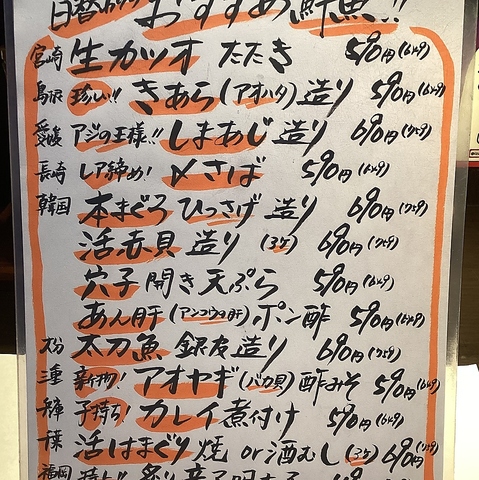 日替わり おすすめ鮮魚!!
宮崎 生カツオ たたき 590円(649)
鳥取 珍しい!! きあら(アオハタ)造り 590円(649)
愛媛 アジの王様!! しまあじ 造り 690円(759)
長崎 レア締め! 〆さば 590円(649)
韓国 本まぐろ ひっさげ 造り 690円(759)
活赤貝 造り (3ケ) 690円(759)
穴子 開き 天ぷら 590円(649)
あん肝(アンコウの肝)ポン酢 590円(649)
太刀魚 銀皮造り 690円(759)
三重 新物! アオヤギ(バカ貝)酢みそ 590円(649)
兵庫 子持ち! カレイ煮付け 590円(649)
千葉 活はまぐり 焼 or 酒むし(3ケ)690円(759)
福岡